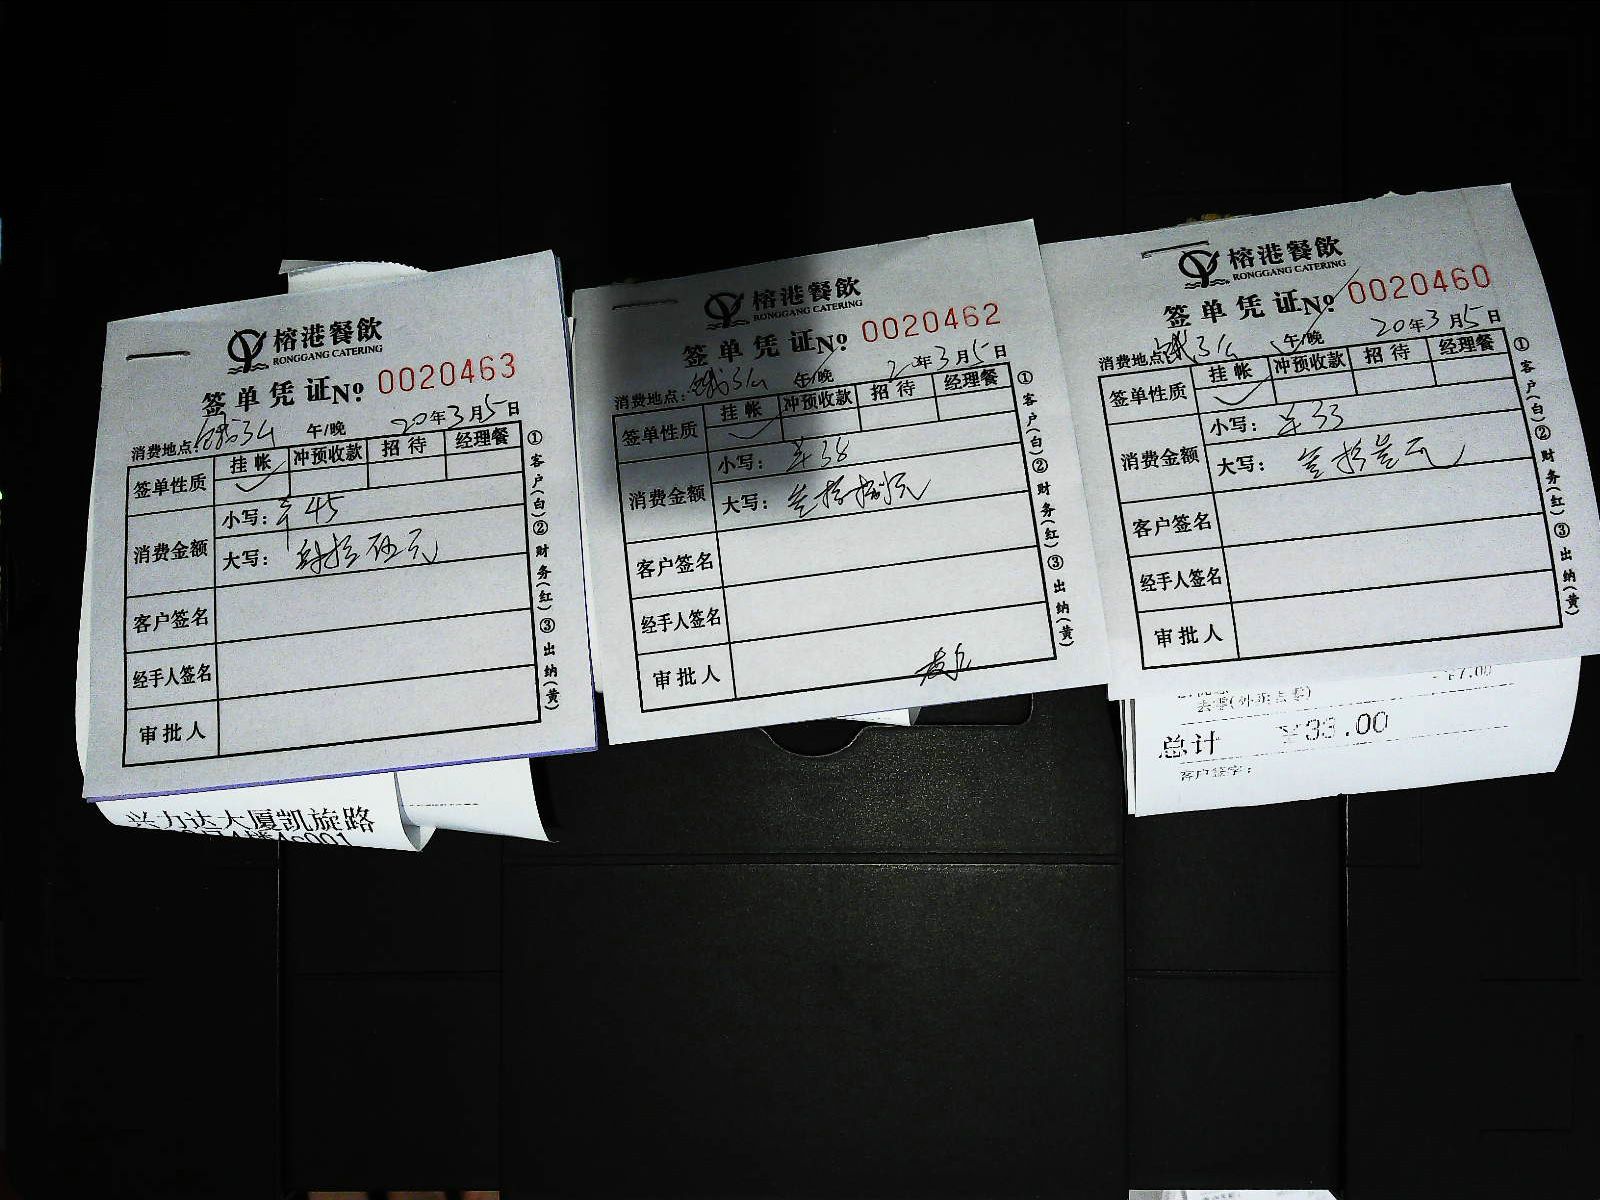 榕港餐飲
RONGGANG CATERING
签单凭证No 0020463
消费地点: 饿了么 午/晚 20年3月5日
签单性质 挂帐 冲预收款 招待 经理餐
消费金额 小写: 45
大写: 肆拾伍元
客户签名
经手人签名
审批人
①客户(白)②财务(红)③出纳(黄)
兴力达大厦凯旋路
榕港餐飲
RONGGANG CATERING
签单凭证No 0020462
消费地点: 饿了么 午/晚 20年3月5日
签单性质 挂帐 冲预收款 招待 经理餐
消费金额 小写: 38
大写: 叁拾捌元
客户签名
经手人签名
审批人
①客户(白)②财务(红)③出纳(黄)
榕港餐飲
RONGGANG CATERING
签单凭证No 0020460
消费地点: 饿了么 午/晚 20年3月5日
签单性质 挂帐 冲预收款 招待 经理餐
消费金额 小写: 33
大写: 叁拾叁元
客户签名
经手人签名
审批人
①客户(白)②财务(红)③出纳(黄)
-¥7.00
总计 ¥33.00
客户签字: